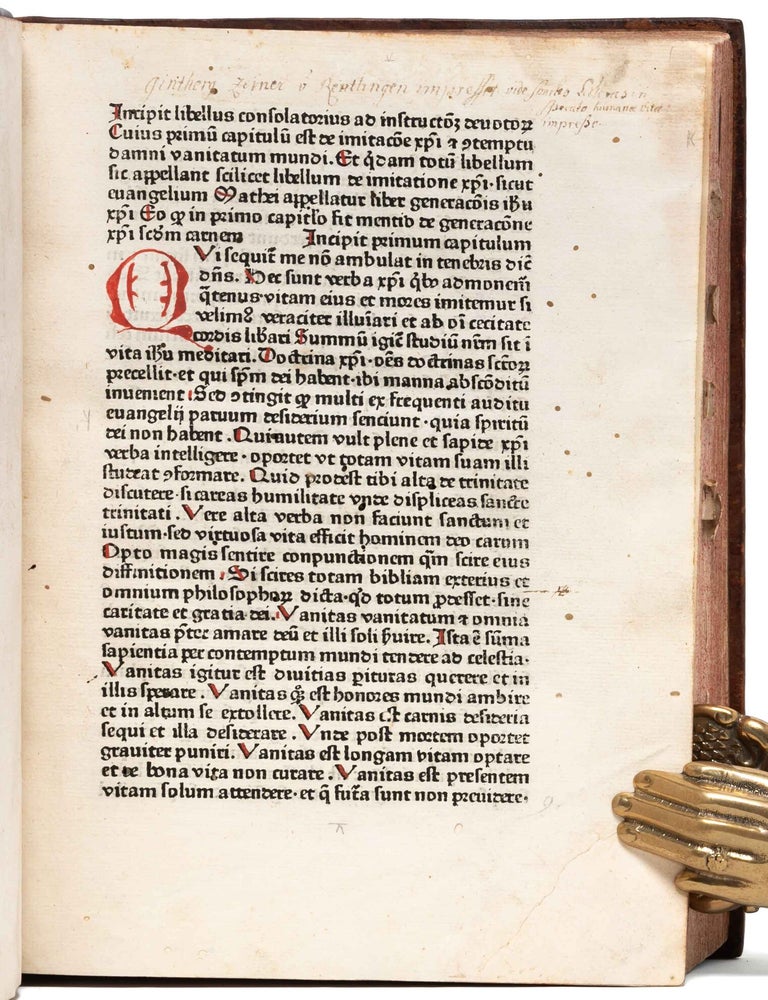 Ginthery Zeiner v Reutlingen impressit vide
humanae vitae
impresse
Incipit libellus consolatorius ad instructōꝫ deuotoꝝ
Cuius primū capitulū est de imitacōe xp̄i ⁊ ꝯtemptu
damni vanitatum mundi. Et qͥdam totū libellum
sic appellant scilicet libellum de imitatione xp̄i· sicut
euangelium Mathei appellatur liber generacōnis ih̄u
xp̄i Eo ꝙ in primo capitl̓o fit mentio de generacōne
xp̄i scd̄m carnem Incipit primum capitulum
QVi sequit᷑ me nō ambulat in tenebris dic̄
dn̄s. Hec sunt verba xp̄i qͥbꝯ admonem̄
q̄tenus·vitam eius et mores imitemur si
velimꝯ veraciter illuīari et ab oī cecitate
cordis lib̓ari Summū igit᷑ studiū nr̄m sit ī
vita ih̄u meditari. Doctrina xp̄i· oēs doctrinas sctōꝝ
precellit·et qui sp̄m dei habent·ibi manna abscōditū
inuenient Sed ꝯtingit ꝙ multi ex frequenti auditu
euangelij paruum desiderium senciunt·quia spiritū
dei non habent. Qui autem vult plene et sapide xp̄i
verba intelligere·oportet vt totam vitam suam illi
studeat ꝯformare. Quid prodest tibi alta de trinitate
discutere·si careas humilitate vnde displiceas sancte
trinitati. Vere alta verba non faciunt sanctum et
iustum·sed virtuosa vita efficit hominem deo carum
Opto magis sentire conpunctionem qm̄ scire eius
diffinitionem Si scires totam bibliam exterius et
omnium philosophoꝝ dicta·qͥd totum ꝓdesset·sine
caritate et gratia dei. Vanitas vanitatum ⁊ omnia
vanitas p̄ter amare deū et illi soli ẜuire. Ista ē sūma
sapientia per contemptum mundi tendere ad celestia·
Vanitas igitur est diuitias p̱ituras querere et in
illis sperare. Vanitas qͦꝫ est honores mundi ambire
et in altum se extollere. Vanitas est carnis desideria
sequi et illa desiderare. Vnde post mortem oportet
grauiter puniri. Vanitas est longam vitam optare
et de bona vita non curare. Vanitas est presentem
vitam solum attendere·et q̄ futa sunt non preuidere·